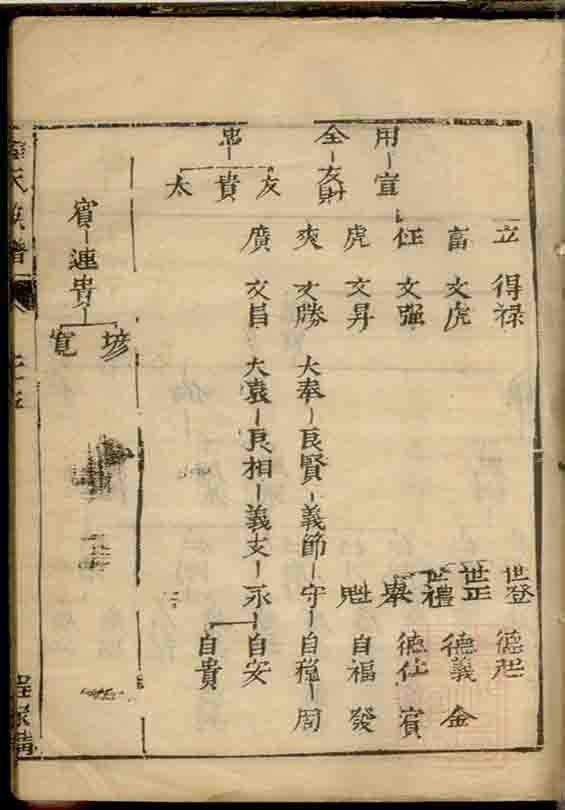 用 宣
全 友財
忠
友 貴 太
立 得禄
富 文虎
任 文强
虎 文昇
爽 文勝 大奉 良賢 義節 守 自穩 周
廣 文昌 大袁 良相 義支 永 自安
自貴
世登 德起
世正 德義 金
世禮 德仕 賓
舉
魁 自福 發
賓 連貴
墋 寬
氏族譜